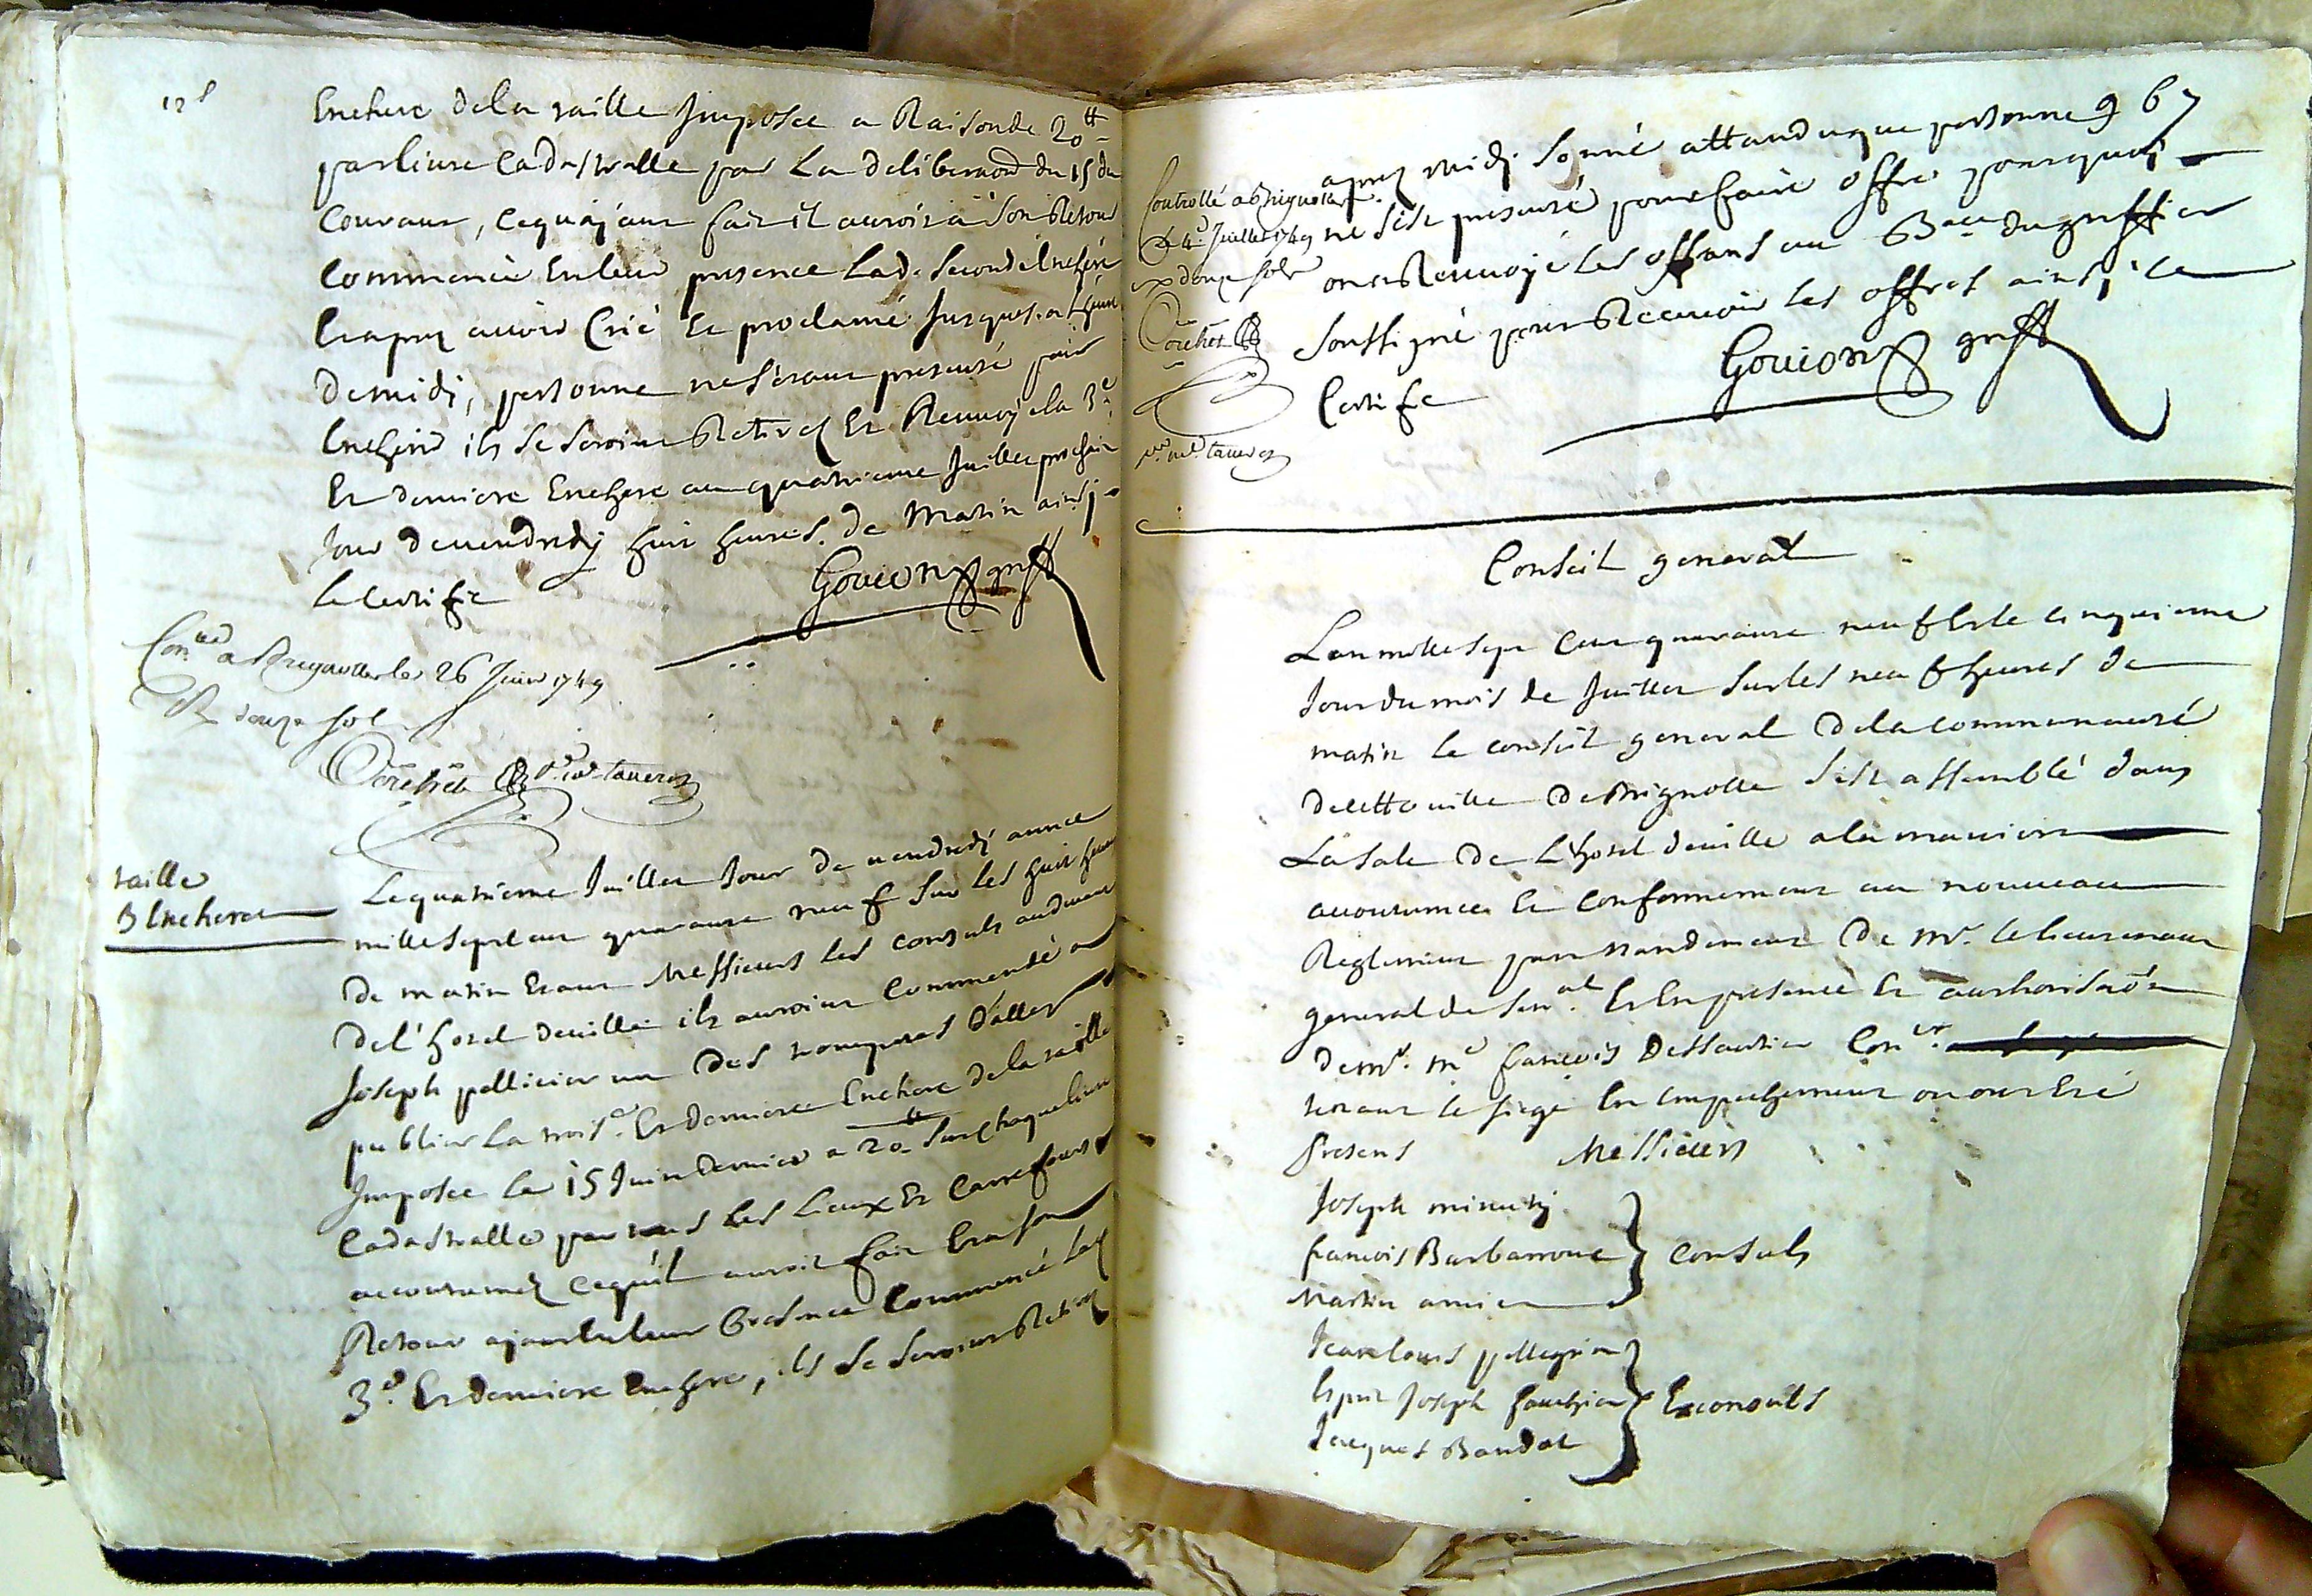 12 s
Enchere dela taille Imposée a Raison de 20 ₶
par liure Cadastralle par La deliberaon du 15 du
Courant, cequ'ajant fait il auroit a son Retour
Commencé En leur presence lad. seconde Enchere
Et aprez auoir Crié Et proclamé Jusques. a L'heure
de midi, personne ne s'etant presenté pour
Encherir ils se seroint Retirez Et Renvoyé la 3e.
Et derniere Enchere au quatrieme Juillet prochain
Jour de vendredy huit heures. de Matin ainsi
le certifie
Gouion greff
Con.llé a Brignolle le 26 Juin 1749
R douze sols
taille
3 Enchere
Le quatrieme Juillet Jour de vendredi année
mille sept cent quarante neuf sur les huit heures
de matin Etant Messieurs les consuls audevant
del'hotel deville ils auroint Commendé a
Joseph pellicier un des trompetes d'aller
publier la trois.e Et derniere Enchere de la taille
Imposée le 15 Juin dernier a 20 ₶ sur chaque liure
Cadastralle par tous les Lieux Et Carrefours
accoutumez cequ'il auroit fait Et a son
Retour ajant En leur Presence Commencé lad
3e. Et derniere Enchere, ils se seroint Retirez
967
Controllé a Brignolle
le 4e Juillet 1749
R douze sols
aprez midi sonné attandu que personne
ne s'est presenté pour faire offre pourquoi
on a Renvoyé les offrans au Bureau du greffier
soussigné pour Recevoir les offres ainsi le
Certifie
Gouion greff
Conseil general
L'an mille sept Cent quarante neuf Et le cinquieme
Jour du mois de Juillet sur les neuf heures de
matin le conseil general dela communauté
de cette ville de Brignolle s'est assemblé dans
La sale de L'hotel deville a la maniere
accoutumée Et Conformement au nouveau
Reglement par Mandement de Mr. le lieutenant
general de Sen.al Et En presence Et authorisaon
de Mr. Me françois Dessautier Con.er
tenant le siege En Empechement ou ont Eté
Presens Messieurs
Joseph minuty
françois Barbarroux
Martin amic
Consuls
Jean louis pellegrin
Esprit Joseph fauchier
Jacques Baudot
Exconsuls